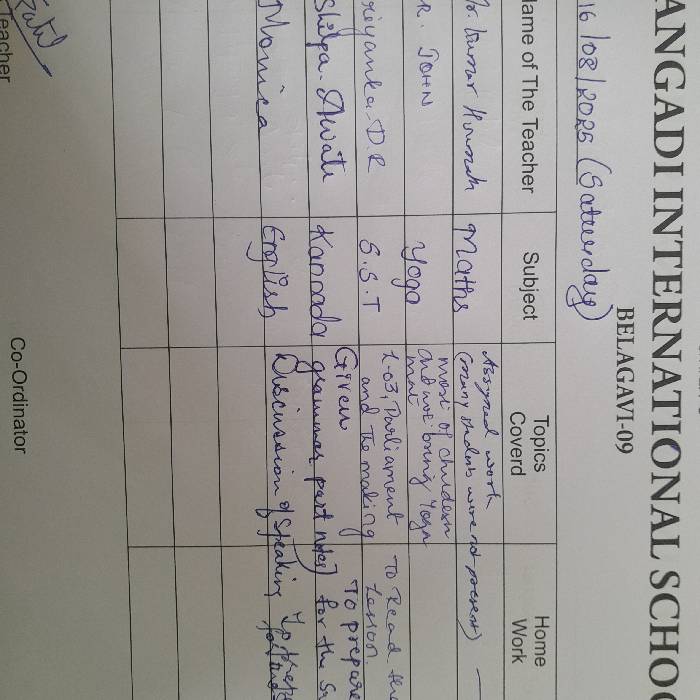 ANGADI INTERNATIONAL SCHOO
BELAGAVI-09
16/08/2025 (Saturday)
ame of The Teacher Subject Topics Coverd Home Work
Kumar Maths Assigned work
(many students were not present) —
R. JOHN Yoga most of children
and we bring Yoga
mat
riyanka. D.R S.S.T L-03, Parliament To Read the
and the making Lesson.
Shilpa. Awati Kannada Given To prepare
grammar part notes for the
Monica English Discussion of Speaking To
Teacher Co-Ordinator